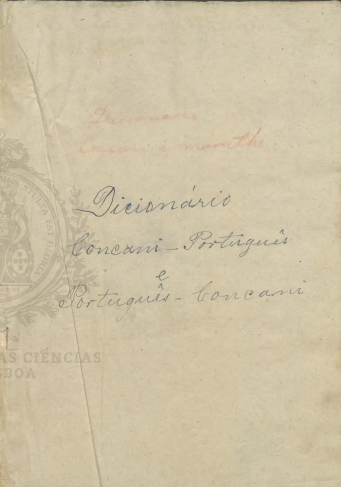 Diccionario
Concani e marathe
Dicionário
Concani - Português
e
Português - Concani
AS CIÊNCIAS
SBOA